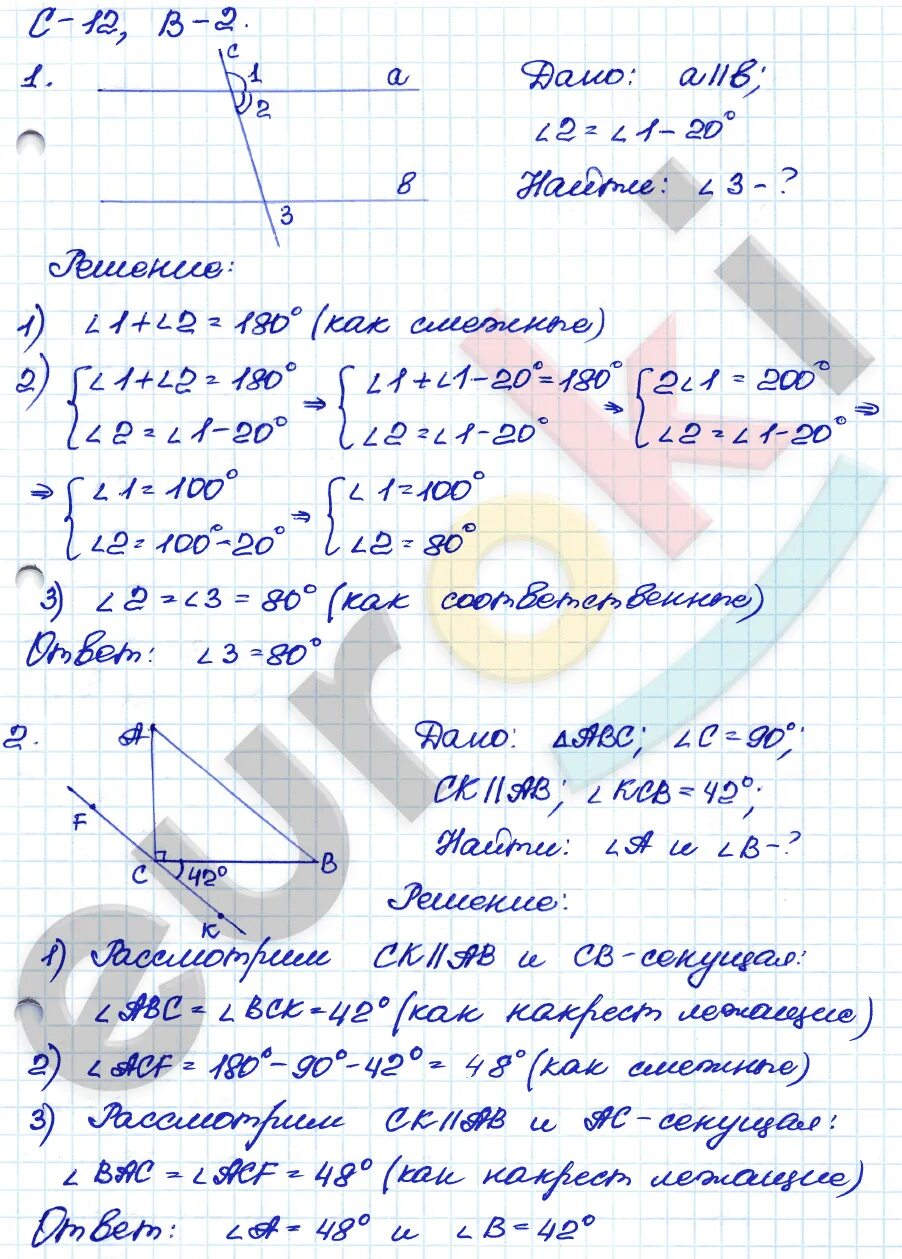 С-12, В-2.
1.
c
1
a
2
в
3
Дано: a||в;
∠2=∠1-20°
Найти: ∠3-?
Решение:
1) ∠1+∠2=180° (как смежные)
2) {∠1+∠2=180° ⇒ {∠1+∠1-20°=180° ⇒ {2∠1=200°
∠2=∠1-20° ∠2=∠1-20° ∠2=∠1-20° ⇒
⇒ {∠1=100° ⇒ {∠1=100°
∠2=100°-20° ∠2=80°
3) ∠2=∠3=80° (как соответственные)
Ответ: ∠3=80°
2.
A
F
C
42°
B
K
Дано: △ABC; ∠C=90°;
CK||AB; ∠KCB=42°;
Найти: ∠A и ∠B-?
Решение:
1) Рассмотрим CK||AB и CB-секущая:
∠ABC=∠BCK=42° (как накрест лежащие)
2) ∠ACF=180°-90°-42°=48° (как смежные)
3) Рассмотрим CK||AB и AC-секущая:
∠BAC=∠ACF=48° (как накрест лежащие)
Ответ: ∠A=48° и ∠B=42°
euroki